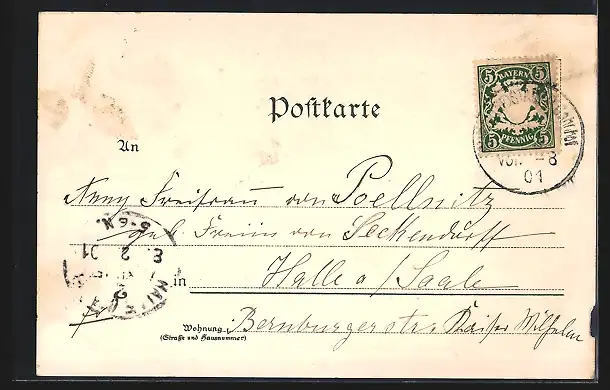 Postkarte
5 BAYERN 5
5 PFENNIG 5
VOR. -8
01
An
Frau Freifrau von Poellnitz
geb. Freiin von Seckendorff
Halle a/Saale
in
Wohnung
(Straße und Hausnummer)
Bernburgerstr. Kaiser Wilhelm
5-6 N.
8. 2 01
HALLE